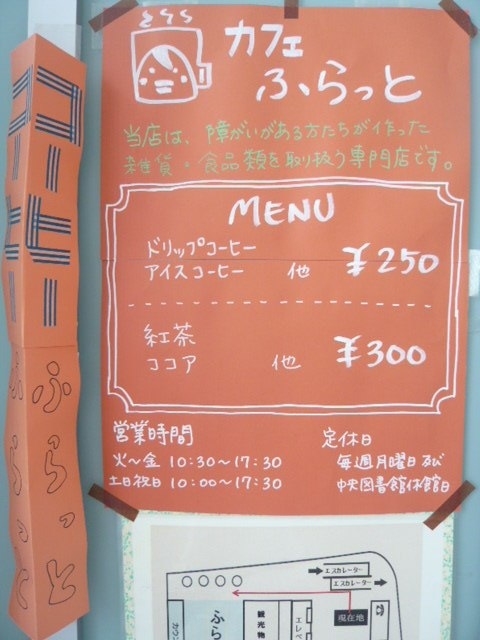 カフェ
ふらっと
当店は、障がいがある方たちが作った
雑貨・食品類を取り扱う専門店です。
MENU
ドリップコーヒー
アイスコーヒー 他 ¥250
紅茶
ココア 他 ¥300
営業時間
火〜金 10:30〜17:30
土日祝日 10:00〜17:30
定休日
毎週月曜日及び
中央図書館休館日
コーヒー
ふらっと
エスカレーター
エスカレーター
現在地
カウン
ふら
観光物
エレベ